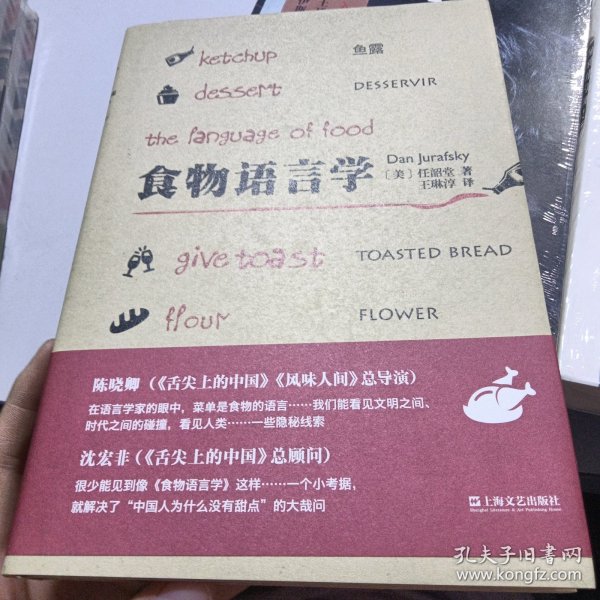 ketchup 鱼露
dessert DESSERVIR
the language of food
食物语言学
Dan Jurafsky
〔美〕任韶堂 著
王琳淳 译
give toast TOASTED BREAD
flour FLOWER
陈晓卿(《舌尖上的中国》《风味人间》总导演)
在语言学家的眼中,菜单是食物的语言……我们能看见文明之间、
时代之间的碰撞,看见人类……一些隐秘线索
沈宏非(《舌尖上的中国》总顾问)
很少能见到像《食物语言学》这样……一个小考据,
就解决了“中国人为什么没有甜点”的大哉问
上海文艺出版社
Shanghai Literature & Art Publishing House
孔夫子旧书网
www.kongfz.com